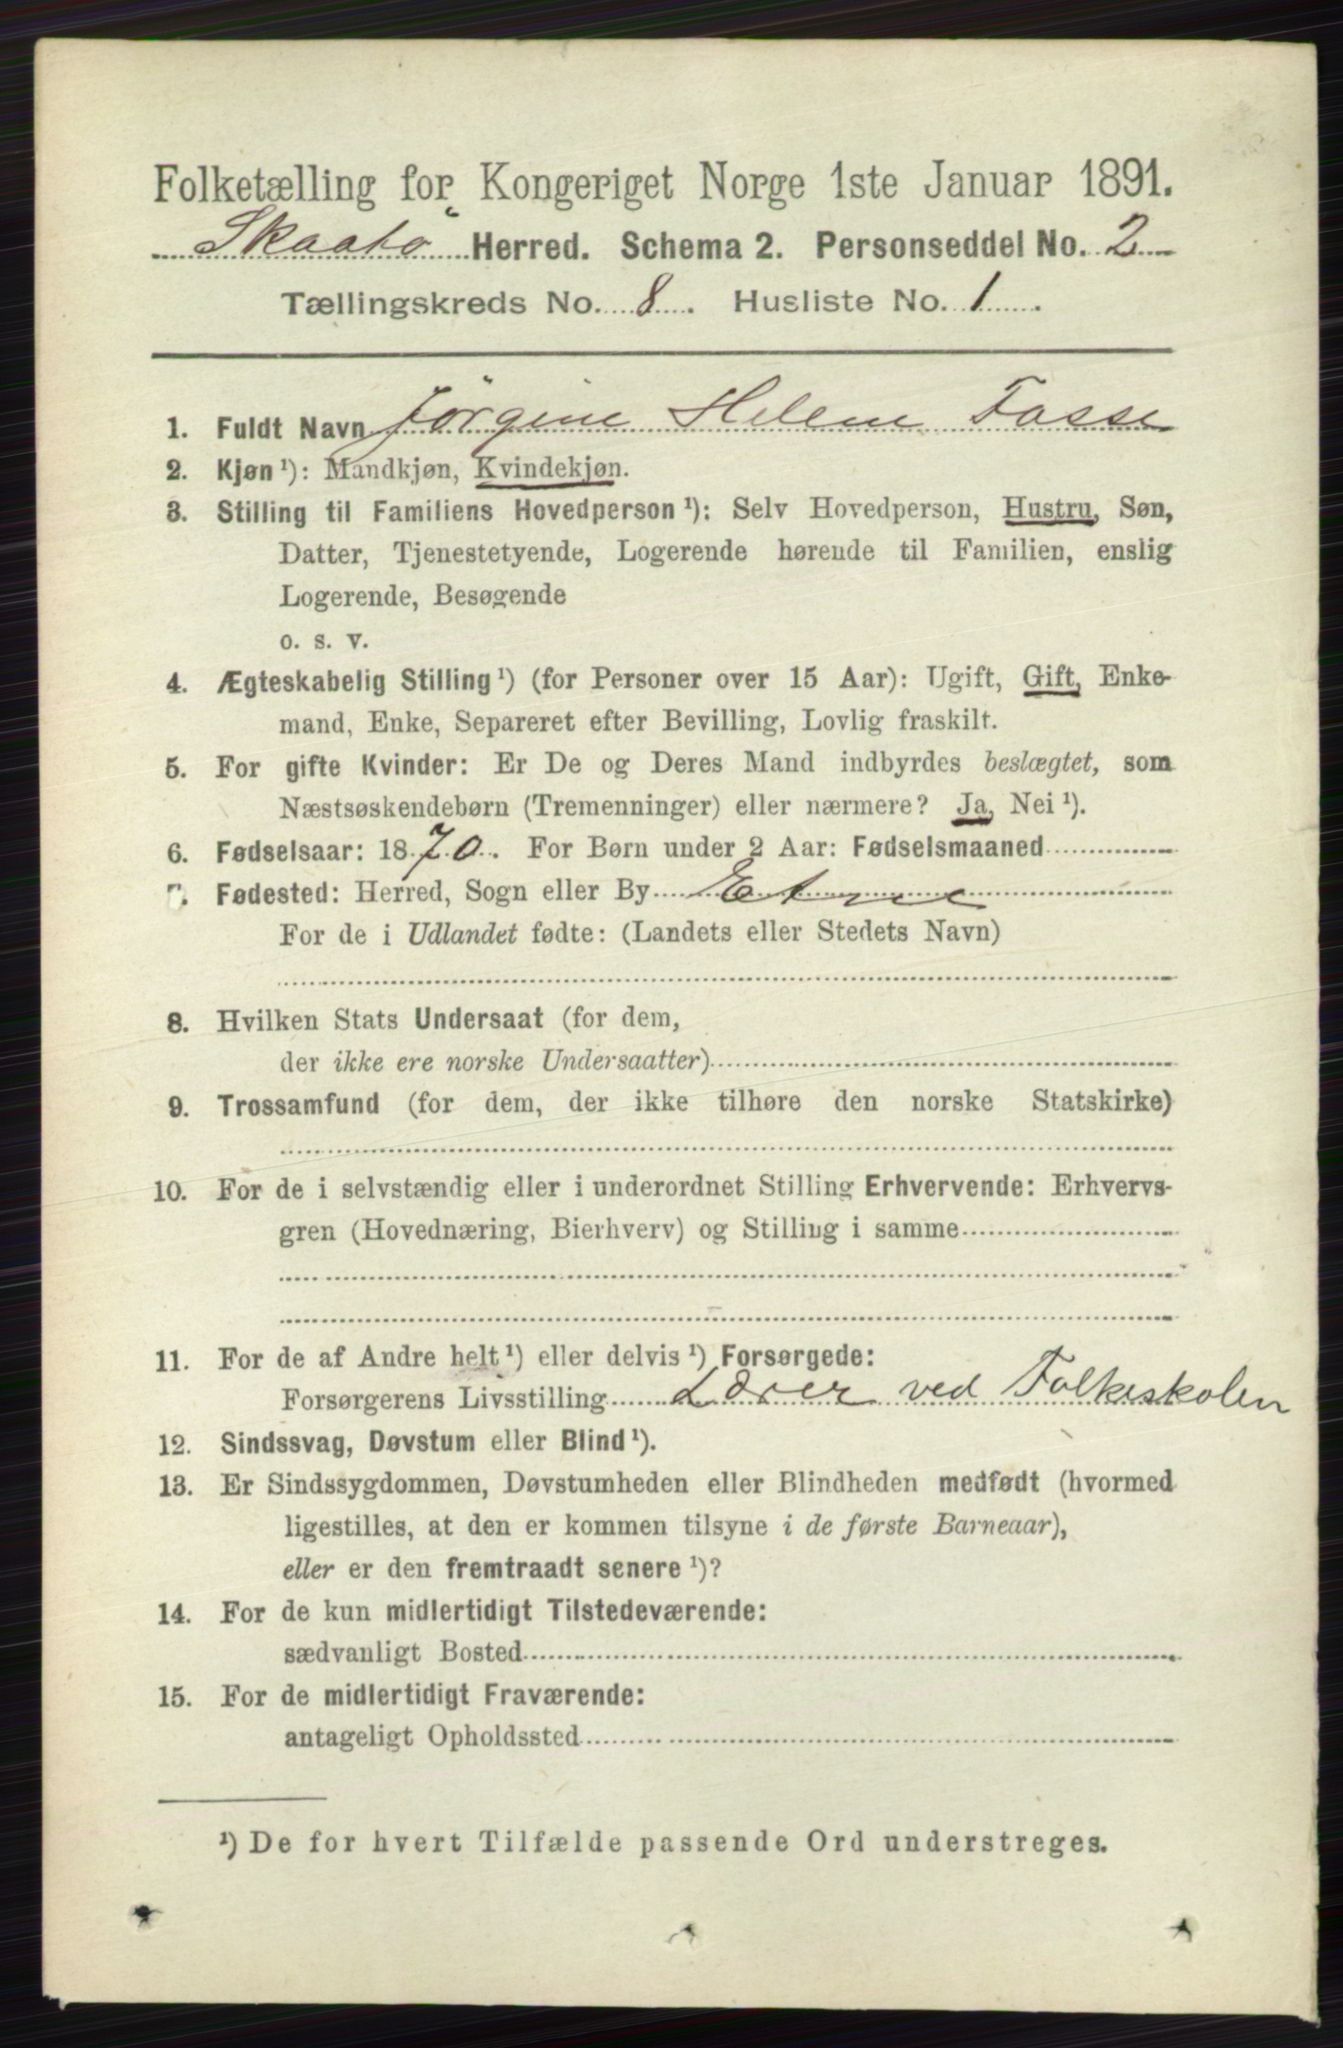 Folketælling for Kongeriget Norge 1ste Januar 1891.
Skaatö Herred. Schema 2. Personseddel No. 2
Tællingskreds No. 8. Husliste No. 1.
1. Fuldt Navn Jörgine Helene Fosse
2. Kjøn¹): Mandkjøn, Kvindekjøn.
3. Stilling til Familiens Hovedperson¹): Selv Hovedperson, Hustru, Søn,
Datter, Tjenestetyende, Logerende hørende til Familien, enslig
Logerende, Besøgende
o. s. v.
4. Ægteskabelig Stilling¹) (for Personer over 15 Aar): Ugift, Gift, Enke-
mand, Enke, Separeret efter Bevilling, Lovlig fraskilt.
5. For gifte Kvinder: Er De og Deres Mand indbyrdes beslægtet, som
Næstsøskendebørn (Tremenninger) eller nærmere? Ja, Nei¹).
6. Fødselsaar: 1870. For Børn under 2 Aar: Fødselsmaaned
7. Fødested: Herred, Sogn eller By Etne
For de i Udlandet fødte: (Landets eller Stedets Navn)
8. Hvilken Stats Undersaat (for dem,
der ikke ere norske Undersaatter)
9. Trossamfund (for dem, der ikke tilhøre den norske Statskirke)
10. For de i selvstændig eller i underordnet Stilling Erhvervende: Erhvervs-
gren (Hovednæring, Bierhverv) og Stilling i samme
11. For de af Andre helt¹) eller delvis¹) Forsørgede:
Forsørgerens Livsstilling Lærer ved Folkeskolen
12. Sindssvag, Døvstum eller Blind¹).
13. Er Sindssygdommen, Døvstumheden eller Blindheden medfødt (hvormed
ligestilles, at den er kommen tilsyne i de første Barneaar),
eller er den fremtraadt senere¹)?
14. For de kun midlertidigt Tilstedeværende:
sædvanligt Bosted
15. For de midlertidigt Fraværende:
antageligt Opholdssted
¹) De for hvert Tilfælde passende Ord understreges.